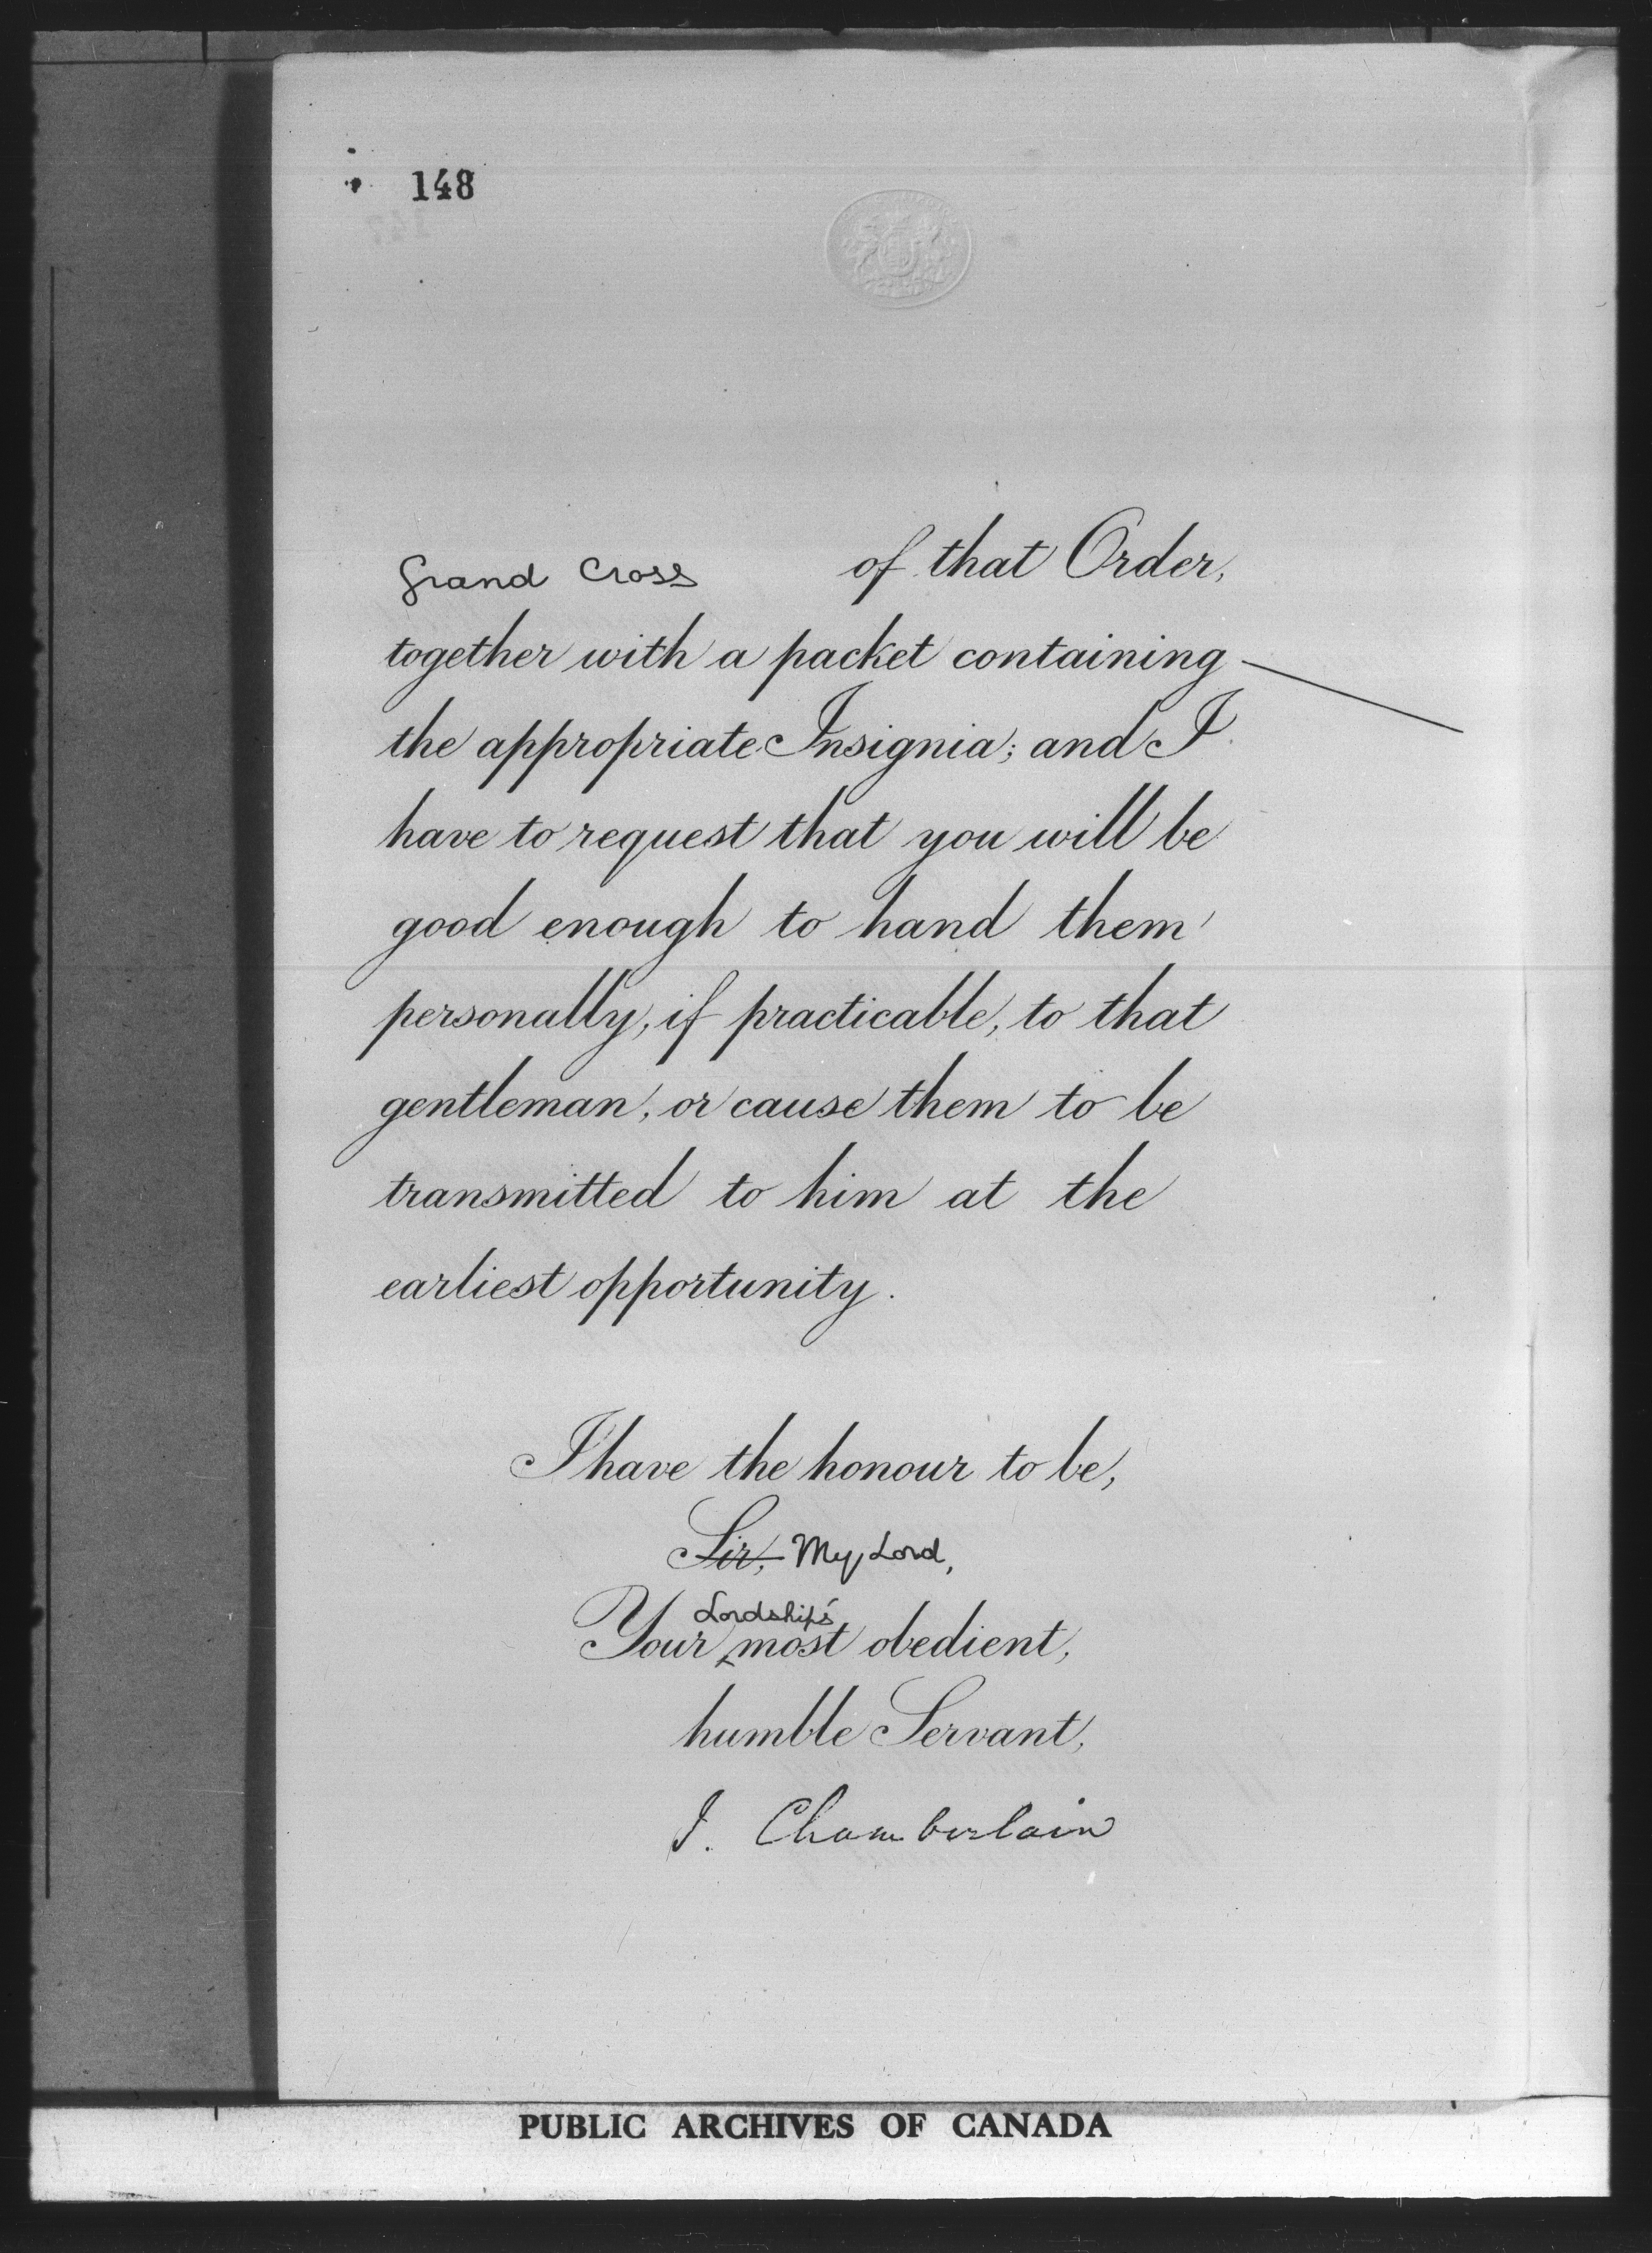 148
Grand Cross of that Order,
together with a packet containing
the appropriate Insignia; and I
have to request that you will be
good enough to hand them
personally, if practicable, to that
gentleman, or cause them to be
transmitted to him at the
earliest opportunity.
I have the honour to be,
Sir, My Lord,
Lordship's
Your most obedient,
humble Servant,
J. Chamberlain
PUBLIC ARCHIVES OF CANADA